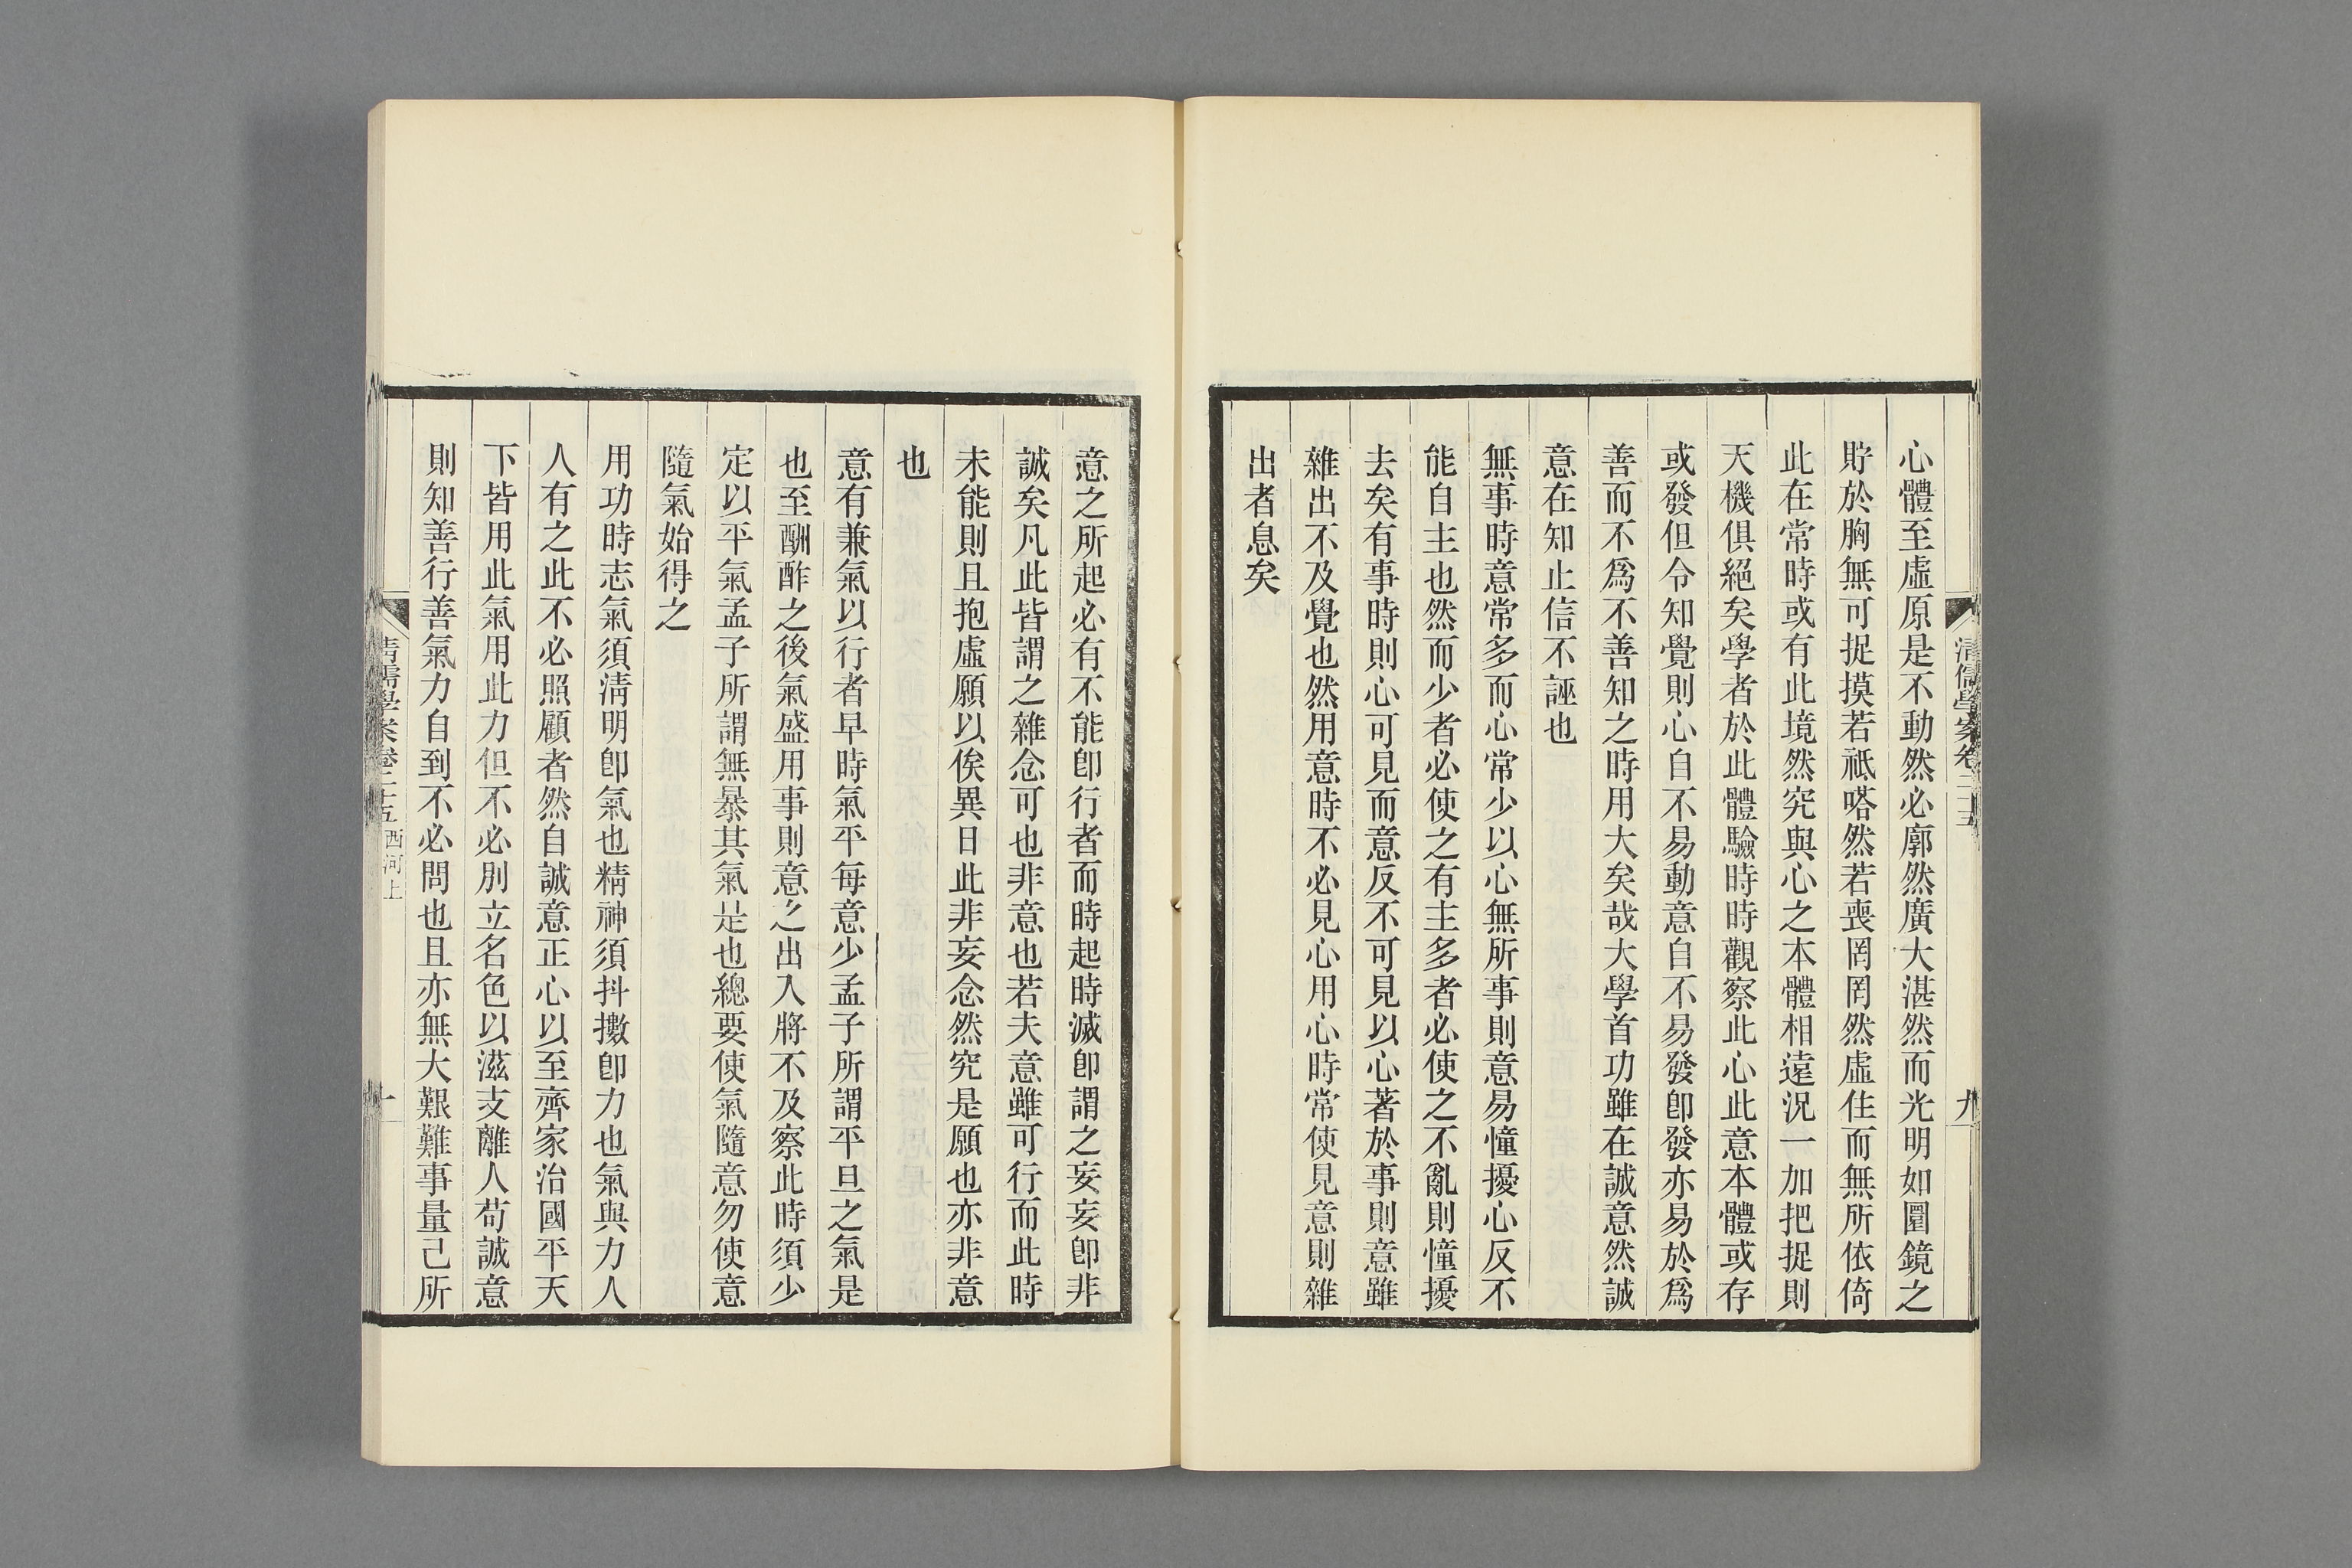 清儒學案卷二十五
九
心體至虛原是不動然必廓然廣大湛然而光明如圓鏡之
貯於胸無可捉摸若祗嗒然若喪罔罔然虛住而無所依倚
此在常時或有此境然究與心之本體相遠況一加把捉則
天機俱絕矣學者於此體驗時時觀察此心此意本體或存
或發但令知覺則心自不易動意自不易發卽發亦易於爲
善而不爲不善知之時用大矣哉大學首功雖在誠意然誠
意在知止信不誣也
無事時意常多而心常少以心無所事則意易憧擾心反不
能自主也然而少者必使之有主多者必使之不亂則憧擾
去矣有事時則心可見而意反不可見以心著於事則意雖
雜出不及覺也然用意時不必見心用心時常使見意則雜
出者息矣
意之所起必有不能卽行者而時起時滅卽謂之妄妄卽非
誠矣凡此皆謂之雜念可也非意也若夫意雖可行而此時
未能則且抱虛願以俟異日此非妄念然究是願也亦非意
也
意有兼氣以行者早時氣平每意少孟子所謂平旦之氣是
也至酬酢之後氣盛用事則意之出入將不及察此時須少
定以平氣孟子所謂無暴其氣是也總要使氣隨意勿使意
隨氣始得之
用功時志氣須淸明卽氣也精神須抖擻卽力也氣與力人
人有之此不必照顧者然自誠意正心以至齊家治國平天
下皆用此氣用此力但不必別立名色以滋支離人苟誠意
則知善行善氣力自到不必問也且亦無大艱難事量己所
清儒學案卷二十五 西河上
十